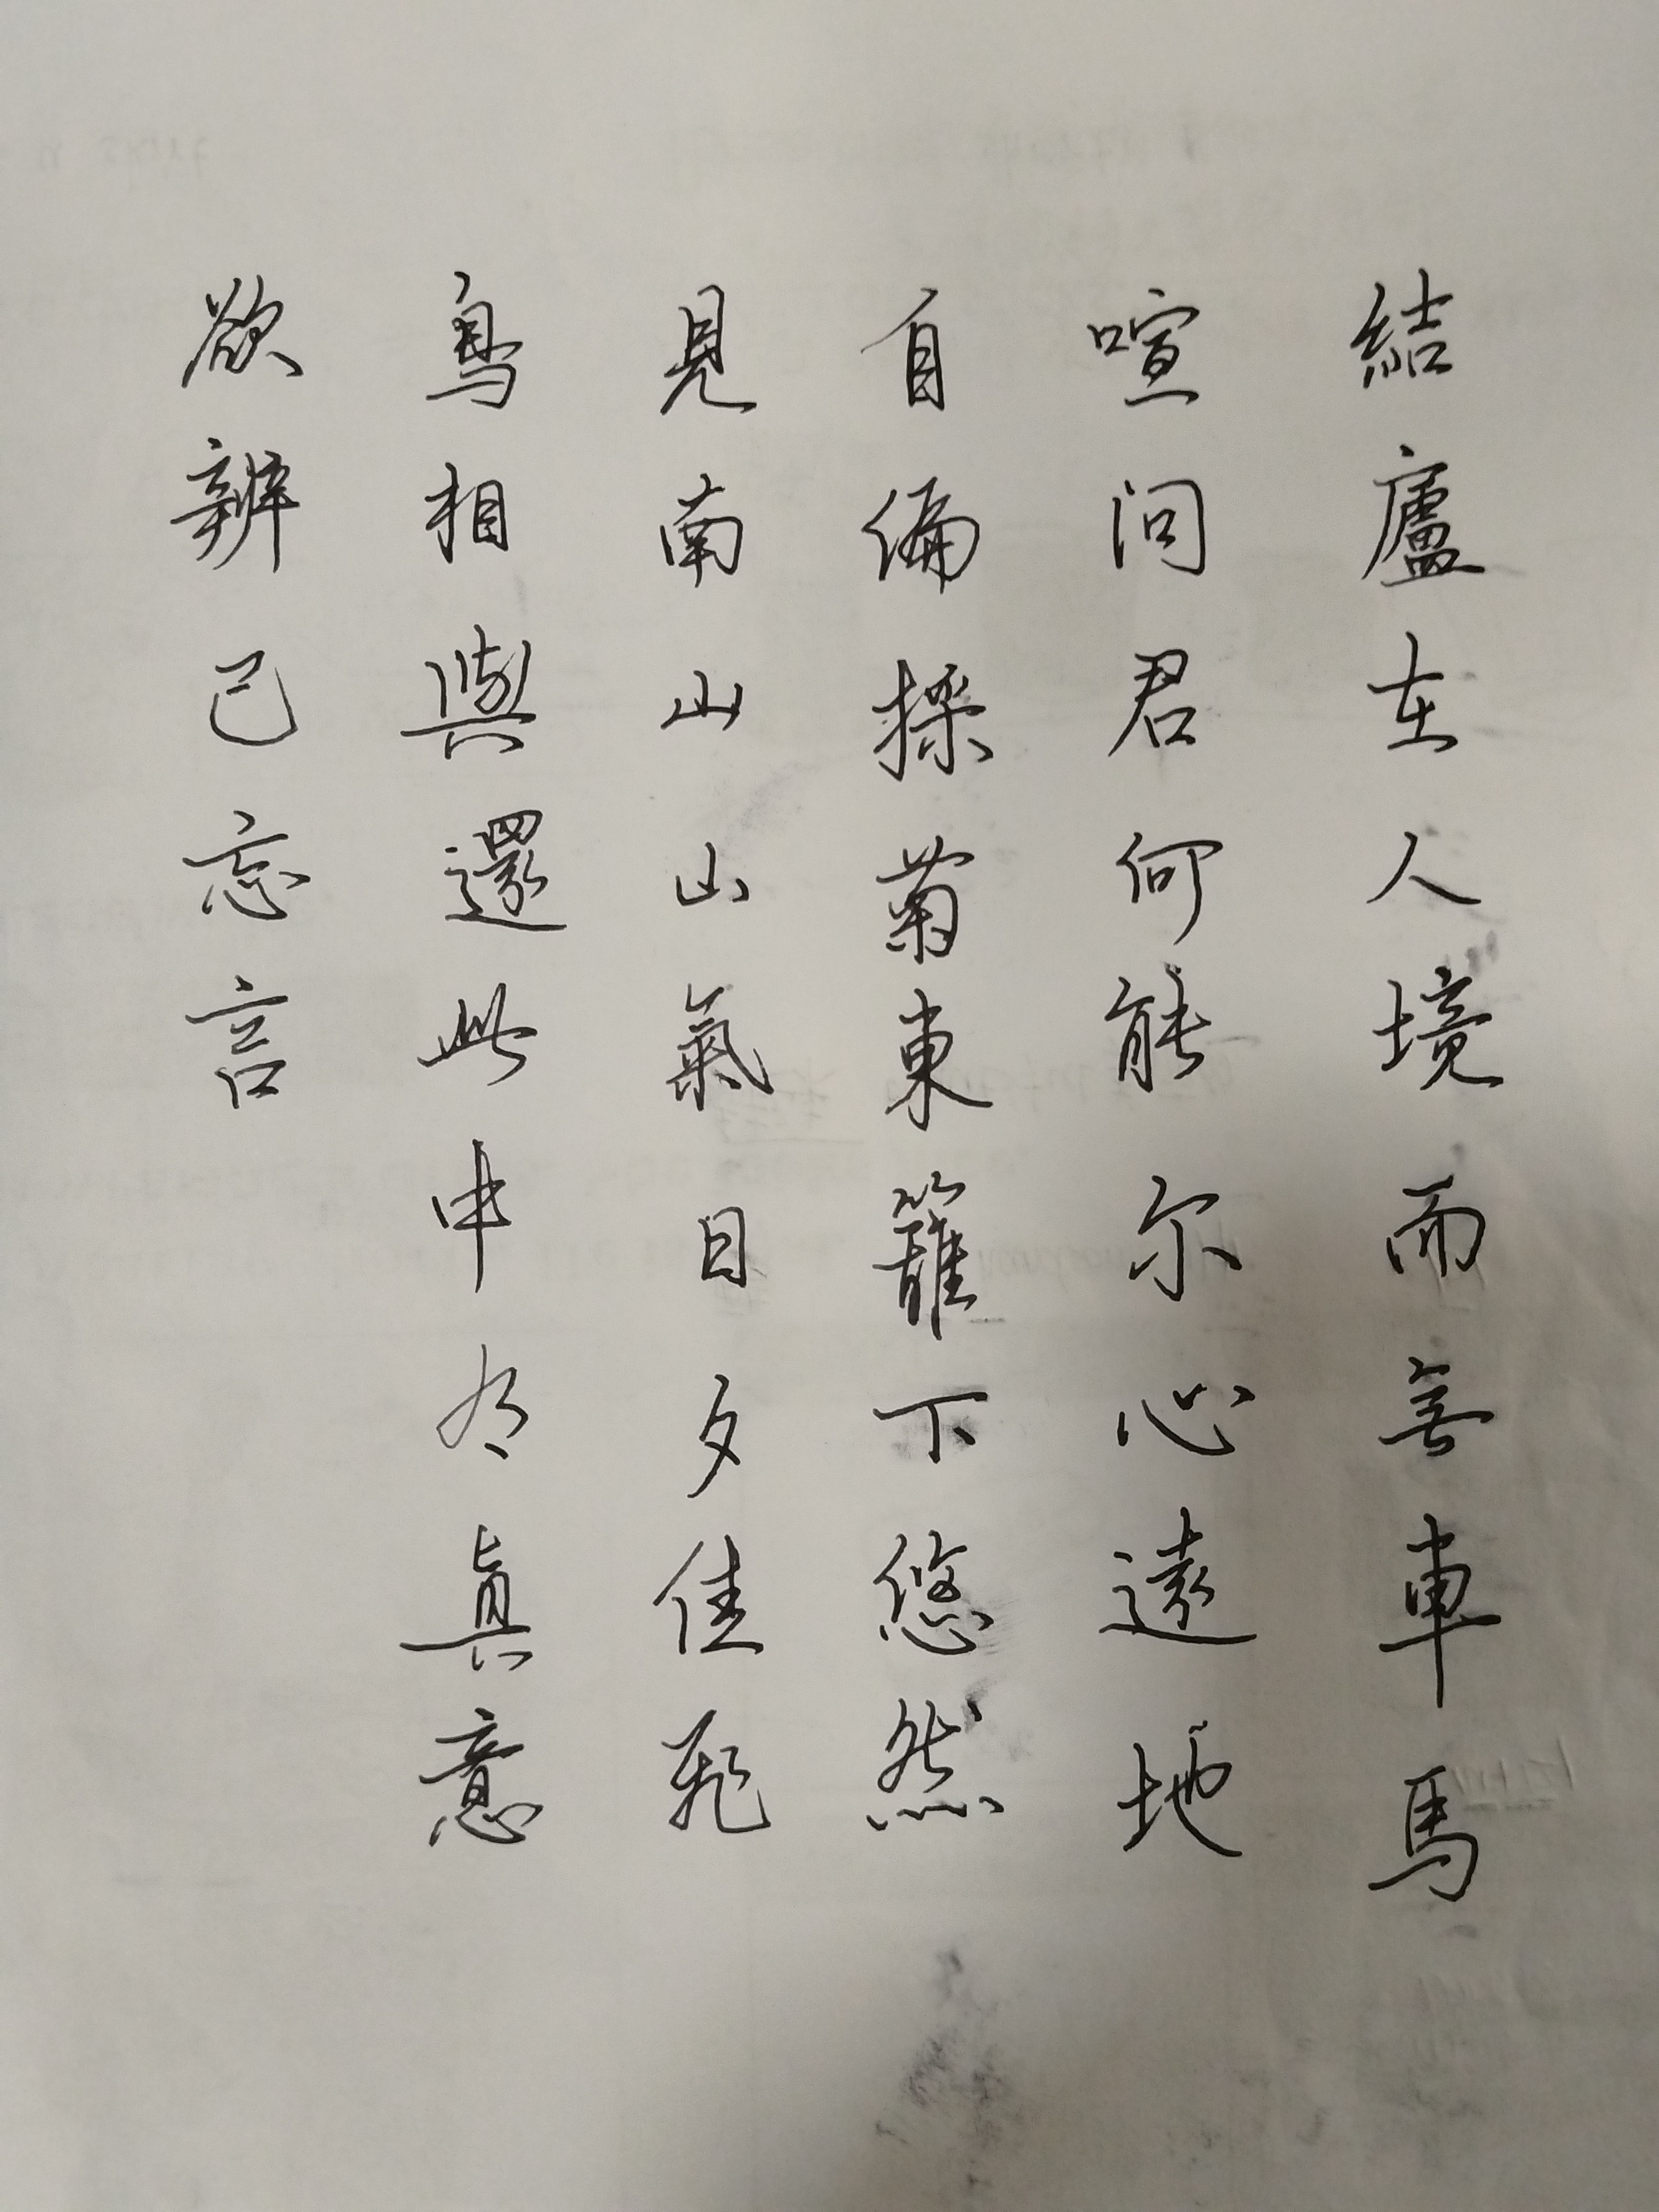 結廬在人境而無車馬
喧问君何能尔心遠地
自偏採菊東籬下悠然
見南山山氣日夕佳飛
鳥相與還此中有真意
欲辨已忘言